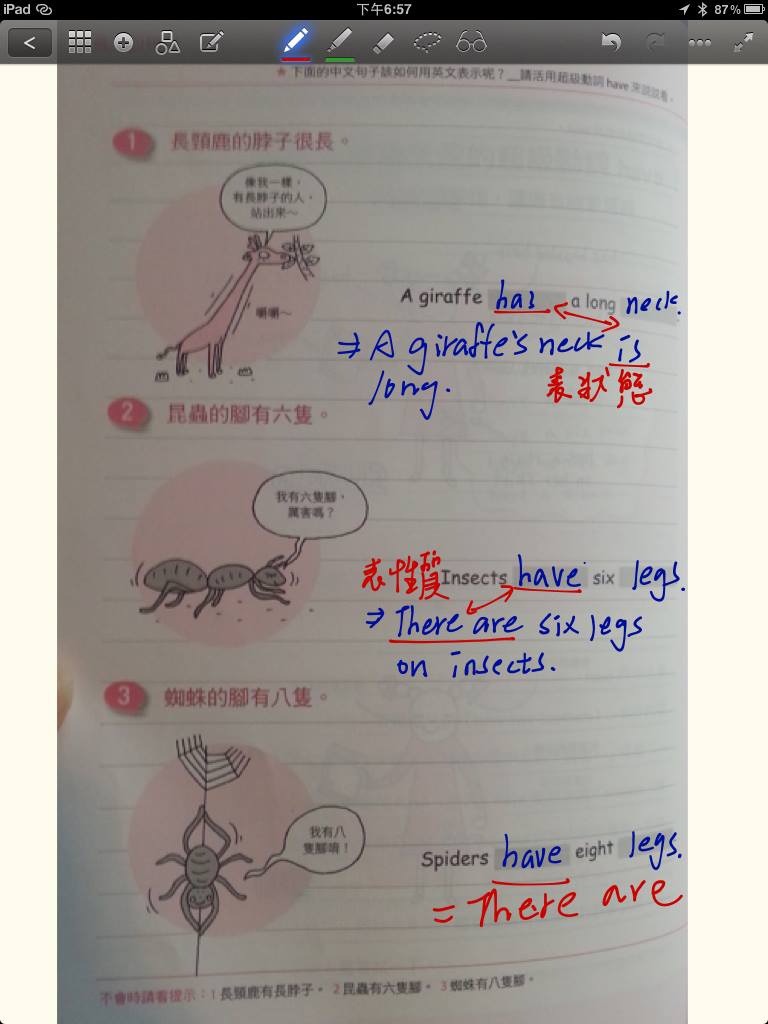 iPad
下午6:57
87%
★ 下面的中文句子該如何用英文表示呢？__請活用超級動詞 have 來說說看。
1 長頸鹿的脖子很長。
像我一樣，
有長脖子的人，
站出來～
嚼嚼～
A giraffe has a long neck.
⇒ A giraffe's neck is
long.
表狀態
2 昆蟲的腳有六隻。
我有六隻腳，
厲害嗎？
表性質
Insects have six legs.
⇒ There are six legs
on insects.
3 蜘蛛的腳有八隻。
我有八
隻腳唷！
Spiders have eight legs.
= There are
不會時請看提示：1 長頸鹿有長脖子。 2 昆蟲有六隻腳。 3 蜘蛛有八隻腳。